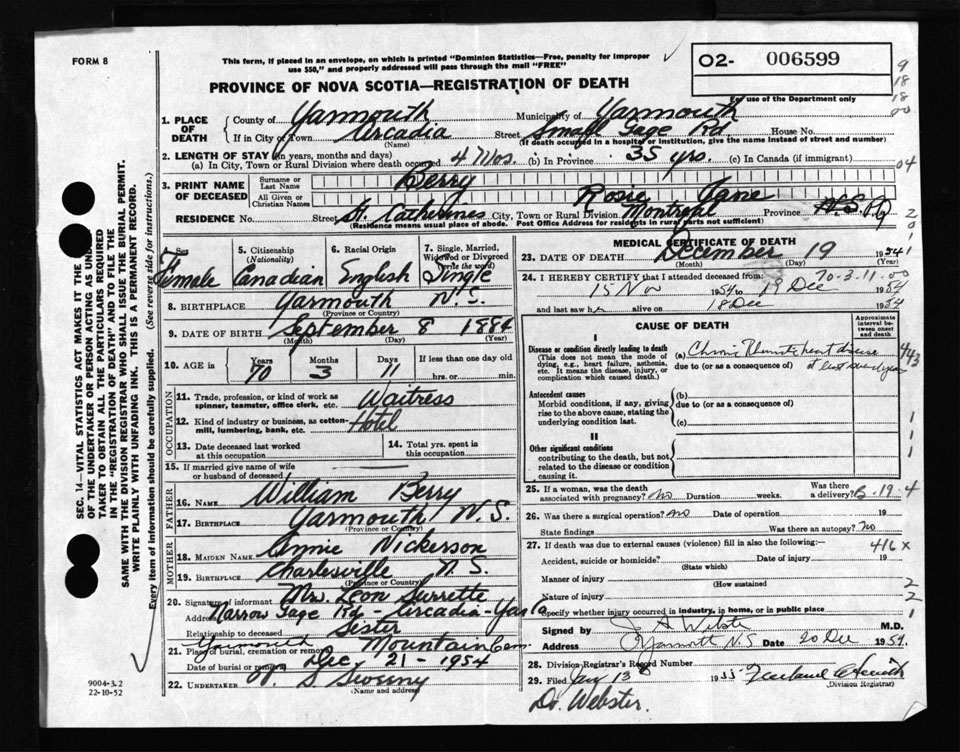 FORM 8
This form, if placed in an envelope, on which is printed "Dominion Statistics—Free, penalty for improper
use $50," and properly addressed will pass through the mail "FREE"
O2- 006599
For use of the Department only
PROVINCE OF NOVA SCOTIA—REGISTRATION OF DEATH
1. PLACE OF DEATH County of Yarmouth Municipality of Yarmouth
If in City or Town Arcadia Street House No.
(Name) (If death occurred in a hospital or institution, give the name instead of street and number)
2. LENGTH OF STAY (in years, months and days)
(a) In City, Town or Rural Division where death occurred 4 Mos. (b) In Province 35 yrs. (c) In Canada (if immigrant)
3. PRINT NAME OF DECEASED Surname or Last Name Berry
All Given or Christian Names Rosie Jane
RESIDENCE No. Street St. Catherines City, Town or Rural Division Montreal Province N.S. PQ
(Residence means usual place of abode. Post Office Address for residents in rural parts not sufficient)
4. Sex Female
5. Citizenship (Nationality) Canadian
6. Racial Origin English
7. Single, Married, Widowed or Divorced (write the word) Single
8. BIRTHPLACE Yarmouth N.S.
(Province or Country)
9. DATE OF BIRTH September 8 1884
(Month) (Day) (Year)
10. AGE in Years 70 Months 3 Days 11 If less than one day old
hrs. or min.
OCCUPATION
11. Trade, profession, or kind of work as spinner, teamster, office clerk, etc. Waitress
12. Kind of industry or business, as cotten-mill, lumbering, bank, etc. Hotel
13. Date deceased last worked at this occupation
14. Total yrs. spent in this occupation
15. If married give name of wife or husband of deceased
FATHER
16. Name William Berry
17. Birthplace Yarmouth, N.S.
(Province or Country)
MOTHER
18. Maiden Name Annie Nickerson
19. Birthplace Charlesville N.S.
(Province or Country)
20. Signature of informant Mrs. Leon Surrette
Address Narrow Gage Rd - Arcadia - Yar. Co
Relationship to deceased Sister
21. Place of burial, cremation or removal Yarmouth Mountain Cem
Date of burial or removal Dec 21 - 1954
22. UNDERTAKER Sweeny
(Name and address)
MEDICAL CERTIFICATE OF DEATH
23. DATE OF DEATH December 19 1954
(Month) (Day) (Year)
70-3-11-00
24. I HEREBY CERTIFY that I attended deceased from:
15 Nov 1954 to 19 Dec 1954
and last saw h alive on 18 Dec 1954
CAUSE OF DEATH
Approximate interval between onset and death
I
Disease or condition directly leading to death
(This does not mean the mode of dying, e.g., heart failure, asthenia, etc. It means the disease, injury, or complication which caused death.)
(a) Chronic Rheumatic heart disease
due to (or as a consequence of)
Antecedent causes
Morbid conditions, if any, giving rise to the above cause, stating the underlying condition last.
(b)
due to (or as a consequence of)
(c)
II
Other significant conditions
contributing to the death, but not related to the disease or condition causing it.
25. If a woman, was the death associated with pregnancy? No Duration weeks. Was there a delivery?
26. Was there a surgical operation? no Date of operation 19
State findings Was there an autopsy? No
27. If death was due to external causes (violence) fill in also the following:—
416 X
Accident, suicide or homicide? Date of injury 19
(State which)
Manner of injury
(How sustained)
Nature of injury
Specify whether injury occurred in industry, in home, or in public place
Signed by Webster M.D.
Address Yarmouth N.S Date 20 Dec 1954
28. Division Registrar's Record Number
29. Filed Jany 13 1955
(Division Registrar)
Dr. Webster.
SEC. 14—VITAL STATISTICS ACT MAKES IT THE
OF THE UNDERTAKER OR PERSON ACTING AS UN
TAKER TO OBTAIN ALL THE PARTICULARS REQUIRED
IN THE "REGISTRATION OF DEATH" AND TO FILE THE
SAME WITH THE DIVISION REGISTRAR WHO SHALL ISSUE THE BURIAL PERMIT.
WRITE PLAINLY WITH UNFADING INK. THIS IS A PERMANENT RECORD.
Every item of information should be carefully supplied. (See reverse side for instructions.)
9004-3.2
22-10-52